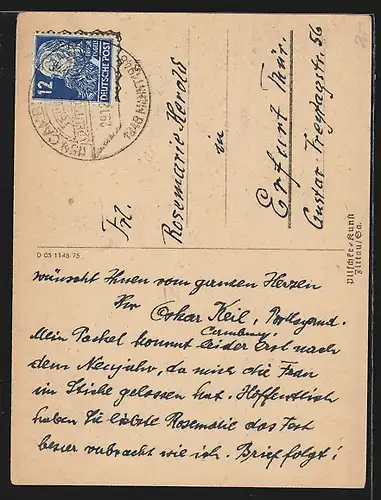 12
HEGEL
DEUTSCHE POST
29.12
Frl.
Rosemarie Herold
in
Erfurt Thür.
Gustav-Freytagstr. 56
D 05 1148 75
Piltscher-Kunst
Zittau/Sa.
wünscht Ihnen vom ganzen Herzen
Ihr Oskar Keil,
Camburg.
Mein Packet kommt leider Erst nach
dem Neujahr, da mich die Frau
im Stiche gelassen hat. Höffentlich
haben Sie liebste Rosematie das Fest
besser vabracht wie ich. Brief folgt!